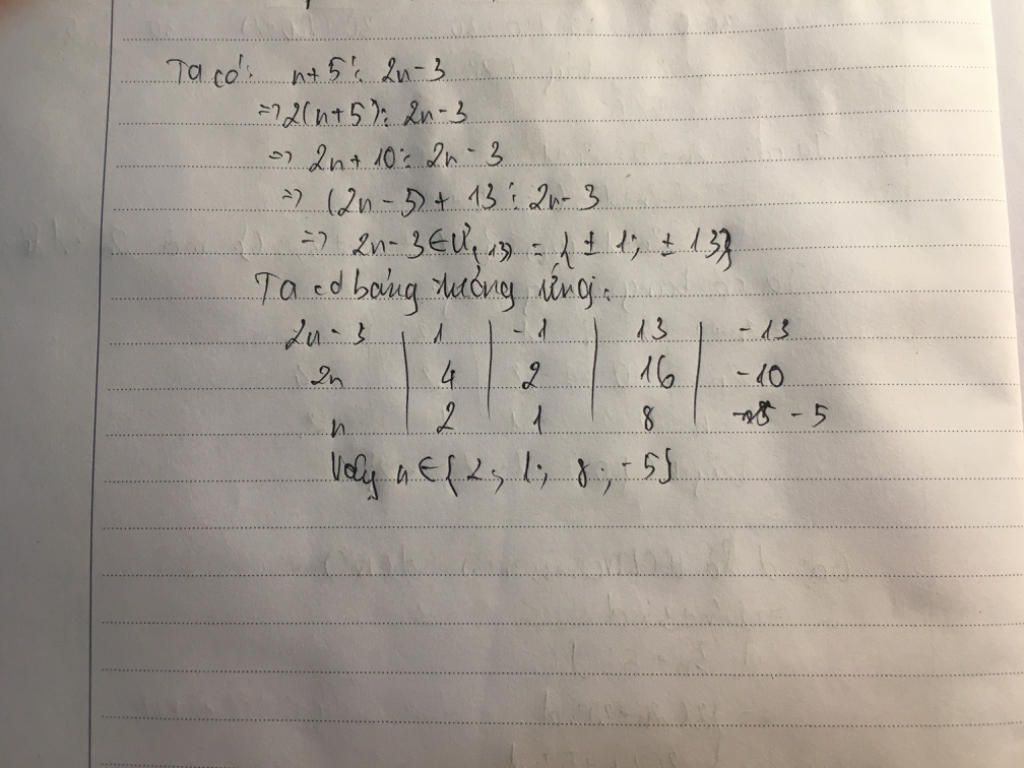 Ta có: n+5 ⋮ 2n-3
=> 2(n+5) ⋮ 2n-3
=> 2n+10 ⋮ 2n-3
=> (2n-3)+13 ⋮ 2n-3
=> 2n-3 ∈ Ư(13) = {±1; ±13}
Ta có bảng tương ứng:
2n-3 | 1 | -1 | 13 | -13
2n | 4 | 2 | 16 | -10
n | 2 | 1 | 8 | -5
Vậy n ∈ {2; 1; 8; -5}